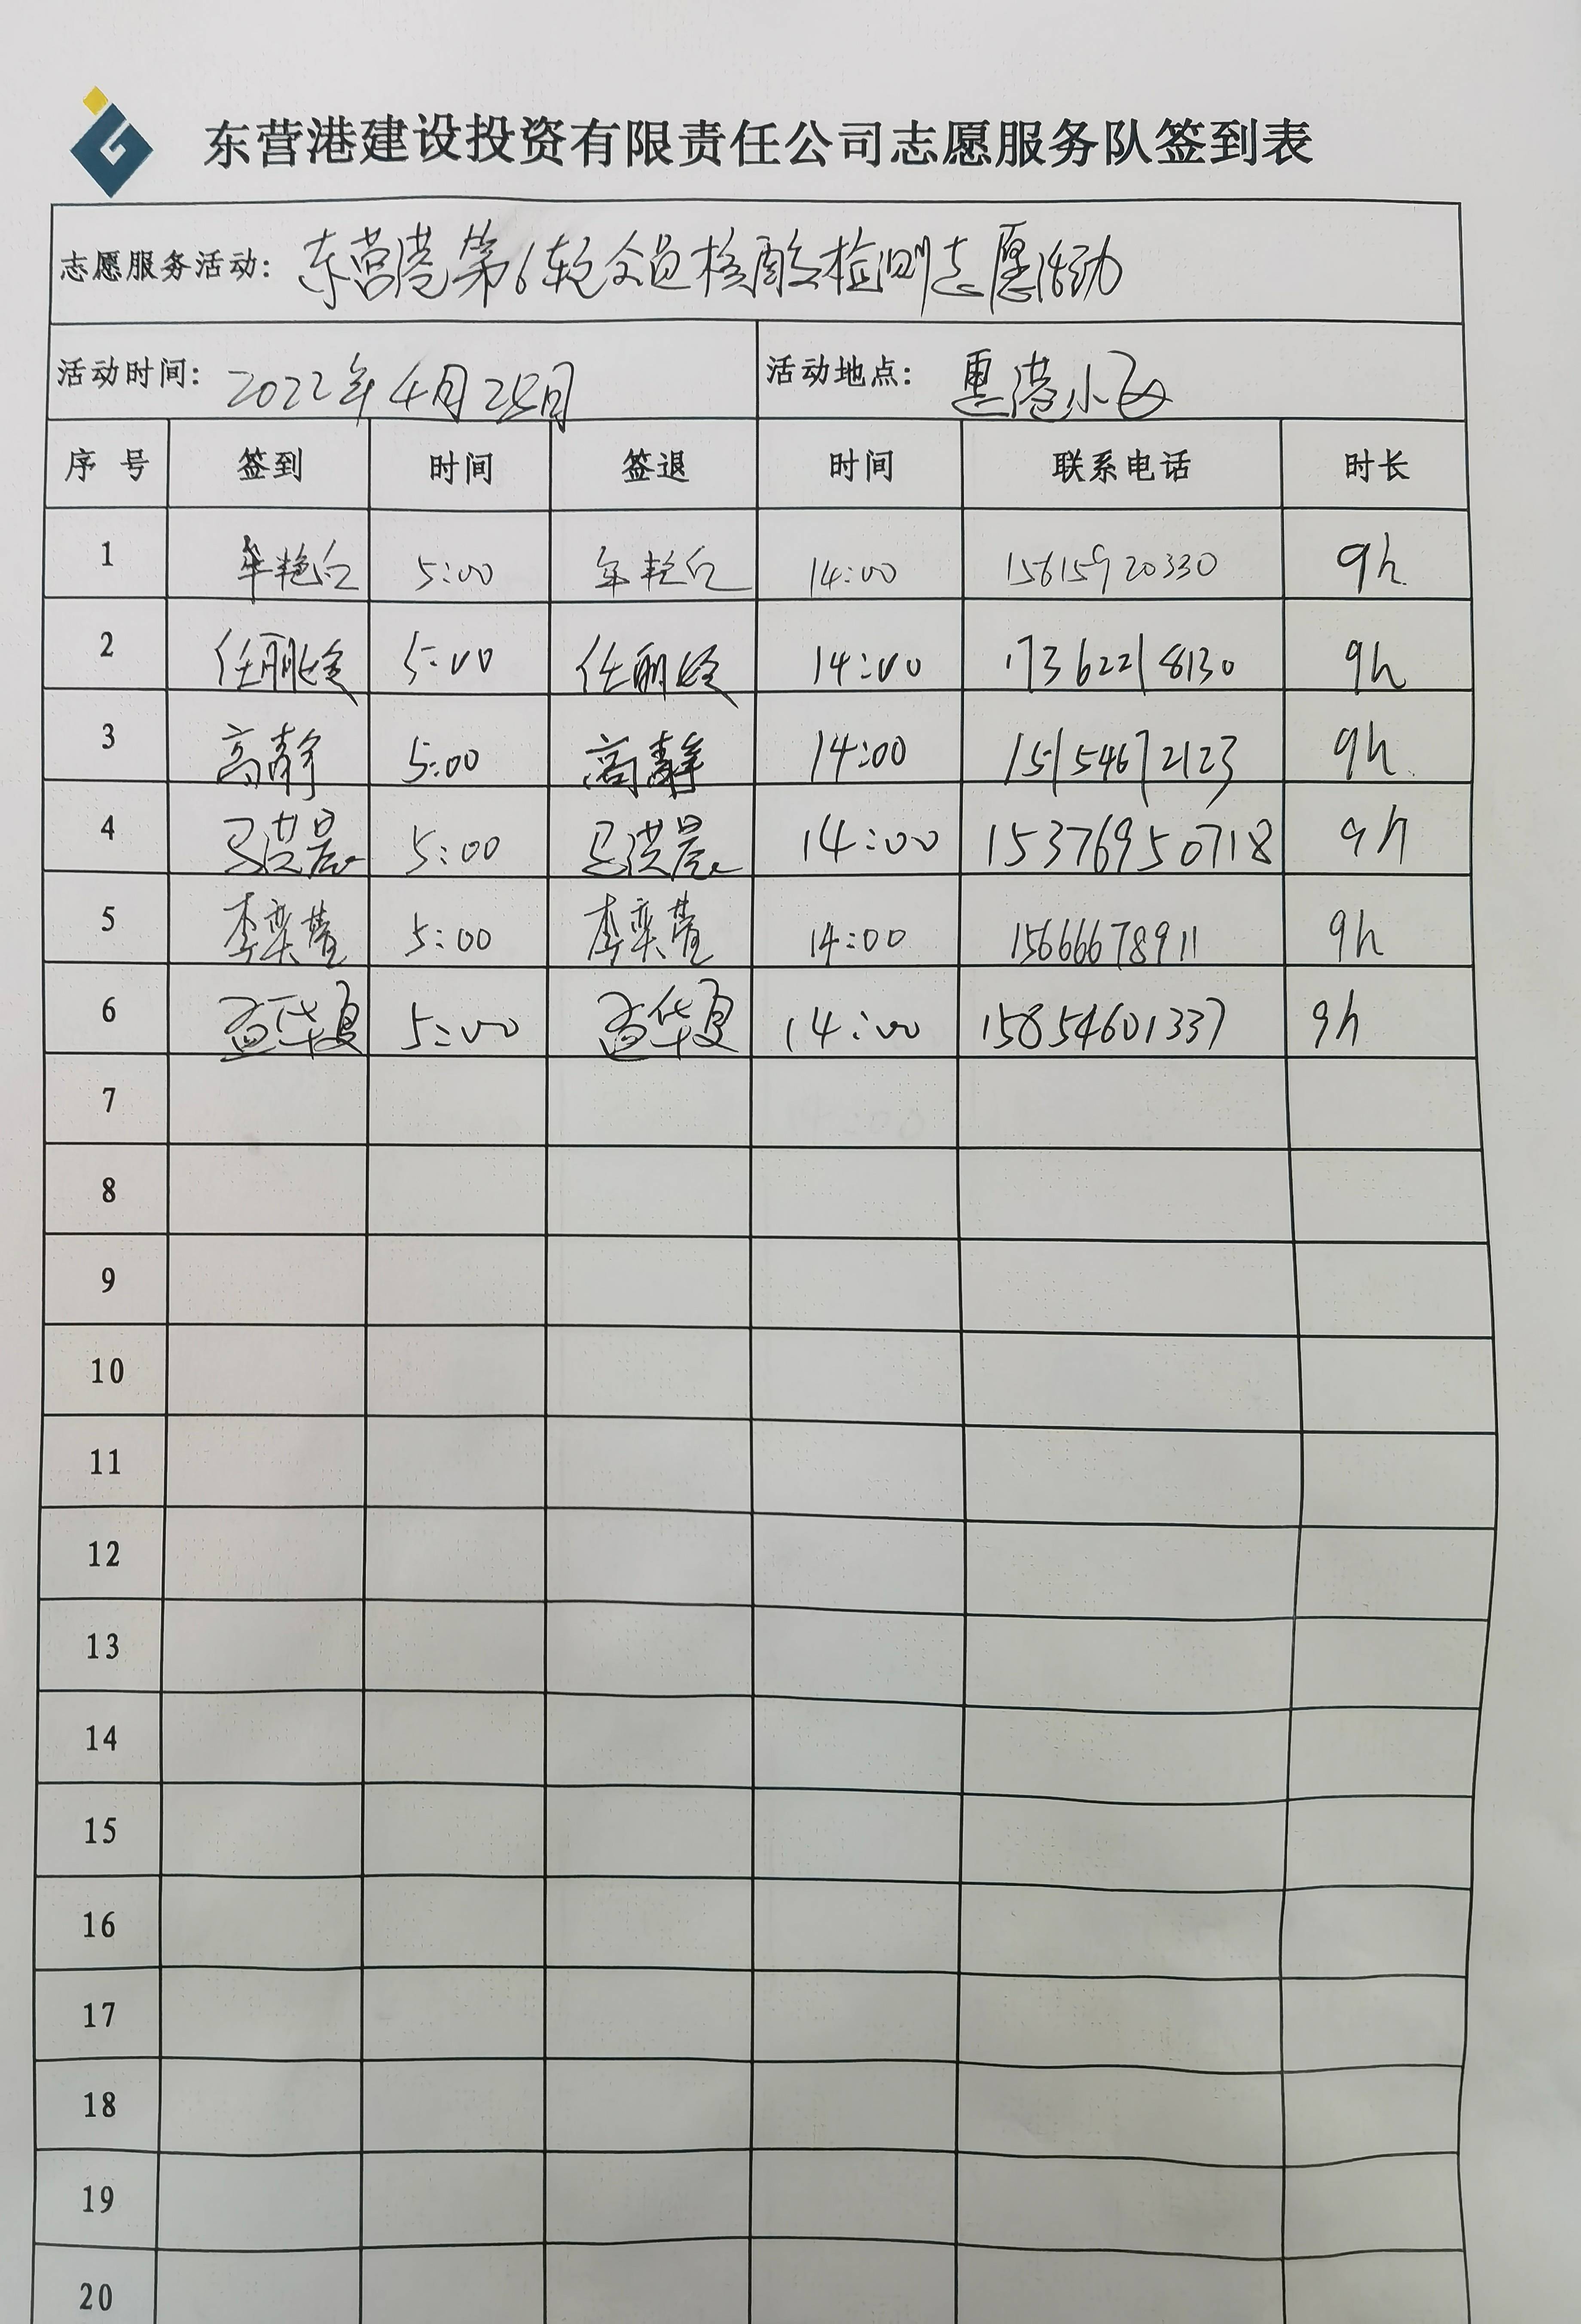 东营港建设投资有限责任公司志愿服务队签到表
志愿服务活动: 东营港第6轮全员核酸检测志愿活动
活动时间: 2022年4月25日 活动地点: 惠港小区
序号 签到 时间 签退 时间 联系电话 时长
1 5:00 14:00 15615920330 9h
2 任丽 5:00 任丽 14:00 17362218130 9h
3 高静 5:00 高静 14:00 15154672123 9h
4 马洪晨 5:00 马洪晨 14:00 15376950718 9h
5 李奕萱 5:00 李奕萱 14:00 15666678911 9h
6 孟华夏 5:00 孟华夏 14:00 15854601337 9h
7
8
9
10
11
12
13
14
15
16
17
18
19
20